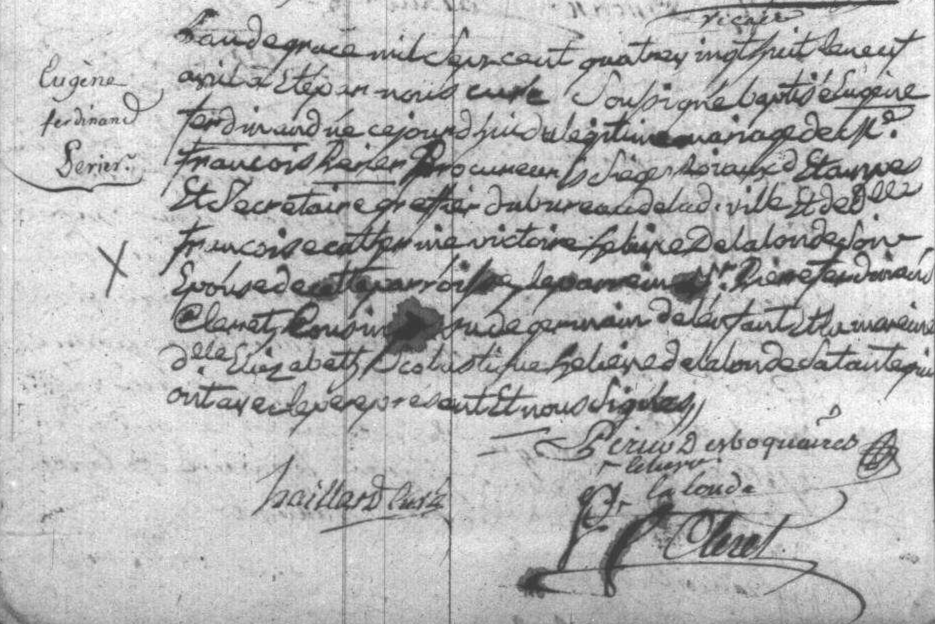 vicaire
Eugène
ferdinand
Perier
L'an de grace mil sept cent quatre vingt huit le neuf
avril a Eté par nous curé Soussigné baptisé Eugène
ferdinand né ce jourd'hui du legitime mariage de Mr.
françois Perier Procureur Es Sieges Roiaux d'Etampes
Et Secretaire greffier du bureau de lad. ville Et de Delle
francoise catherine victoire heliere Delalonde Son
Epouse de cette parroisse, le parrein Sr. Pierre ferdinand
Clerret, Cousin germain de l'enfant Et la mareine
delle Elizabeth Scolastique heliere delalonde sa tante qui
ont avec le pere présent Et nous Signés
Perier Desboquaires
heliere
lalonde
haillard Curé
Pr Cleret